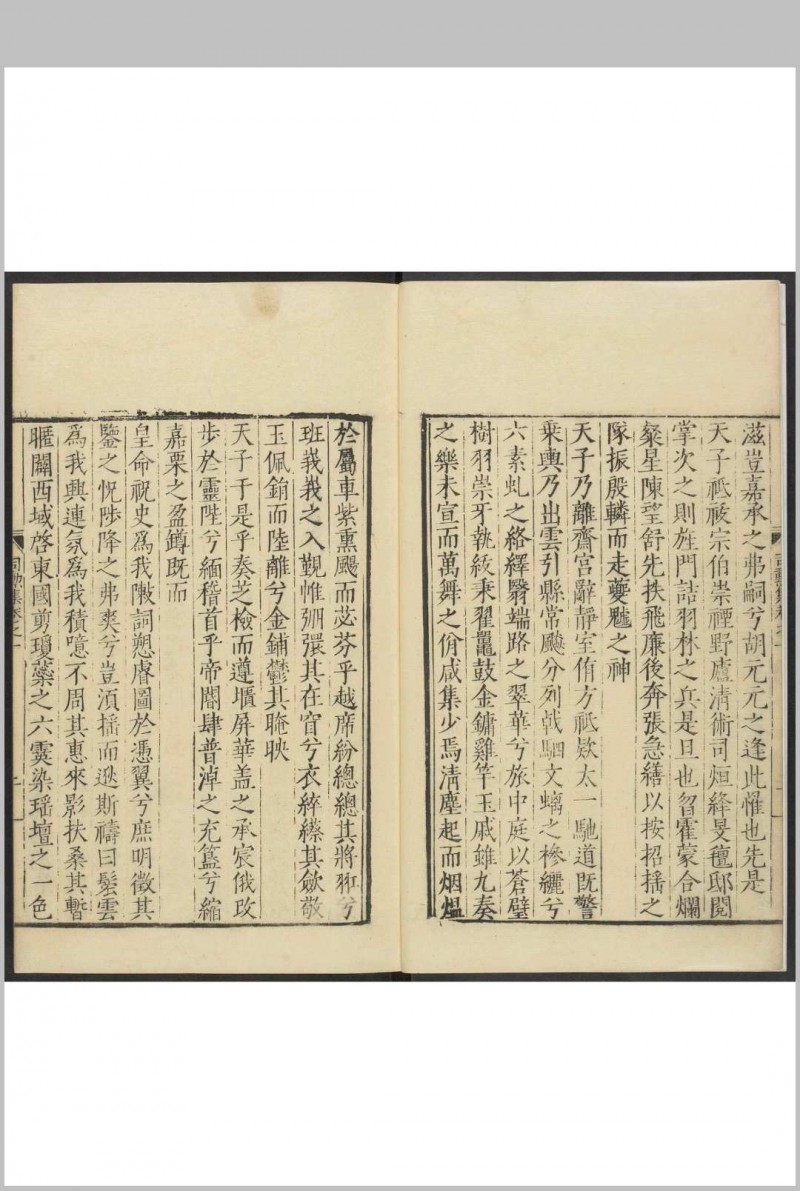 滋豈嘉承之弗嗣兮胡元元之逢此惟也先是
天子祗祓宗伯崇禋野廬清術司烜絳旻氊邸閱
掌次之則旌門詰羽林之兵是旦也曶霍蒙合爛
粲星陳望舒先抶飛廉後奔張急繕以按招揺之
隊振殷轔而走夔魖之神
天子乃離齋宮辭靜室侑方祗欵太一馳道旣警
乗輿乃出雲引縣常飈分列戟駟文螭之椮纚兮
六素虬之絡繹翳端路之翠華兮旅中庭以蒼璧
樹羽崇牙執綏秉翟鼉鼓金鏞雞竿玉戚雖九奏
之樂未宣而萬舞之佾咸集少焉淸塵起而烟熅
於屬車紫熏颺而苾芬乎越席紛總總其將狂兮
班峩峩之入覲惟弸彋其在宵兮衣綷縩其歛敬
玉佩銷而陸離兮金鋪鬱其晻映
天子于是乎奏芝檢而遵壝屏華盖之承宸俄攺
步於靈陛兮緬稽首乎帝閽肆普淖之充簋兮縮
嘉栗之盈罇旣而
皇命祝史爲我敶詞愬睿圖於憑翼兮庶明徵其
鑒之怳陟降之弗爽兮豈湏揺而逖斯禱曰髮雲
爲我興連氛爲我積噫不周其惠來影扶桑其暫
匿闢西域啓東國剪瓊蘂之六霙染瑶壇之一色